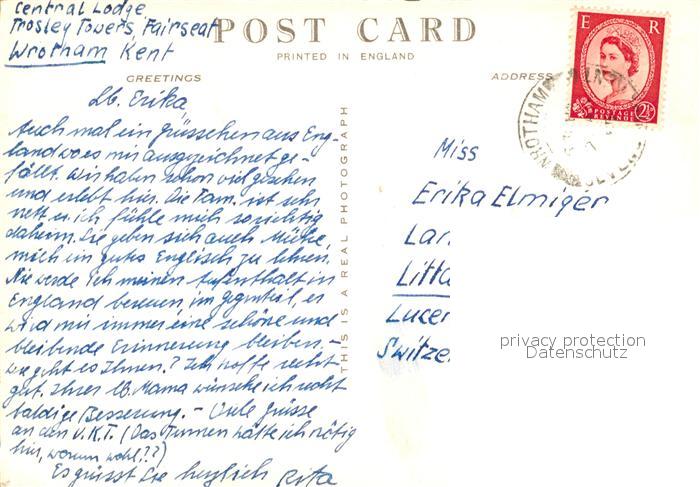 Central Lodge
Trosley Towers, Fairseat
Wrotham Kent
POST CARD
PRINTED IN ENGLAND
GREETINGS
ADDRESS
E R
POSTAGE
REVENUE
2½
WROTHAM
SEVENO
Lb. Erika,
Auch mal ein Grüsschen aus Eng-
land wo es mir ausgezeichnet ge-
fällt. Wir haben schon viel gesehen
und erlebt hier. Die Fam. ist sehr
nett u. ich fühle mich so richtig
daheim. Sie geben sich auch Mühe,
mich ein gutes Englisch zu lehren.
Nie werde ich meinen Aufenthalt in
England bereuen, im Gegenteil, es
wird mir immer eine schöne und
bleibende Erinnerung bleiben. –
Wie geht es Ihnen? Ich hoffe recht
gut. Ihrer lb. Mama wünsche ich recht
baldige Besserung. – Viele Grüsse
an den V.K.T. (Das Turnen hätte ich nötig
hier, warum wohl??)
Es grüsst Sie herzlich Rita
THIS IS A REAL PHOTOGRAPH
Miss
Erika Elmiger
Lan
Litta
Lucer
Switze
privacy protection
Datenschutz